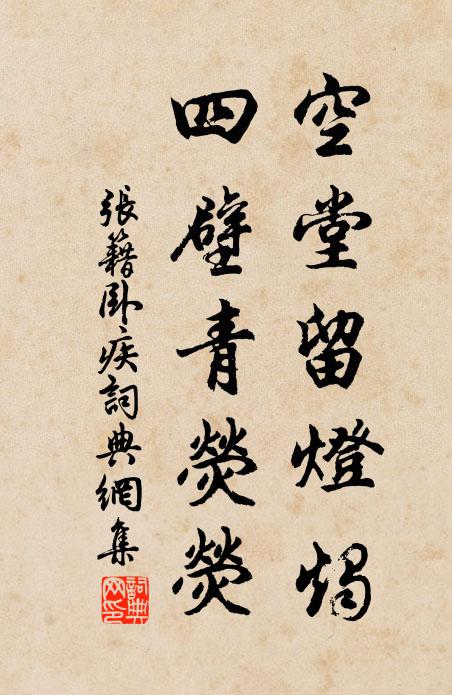 空堂留燈燭
四壁青熒熒
張籍卧疾詞典網集
詞典网印